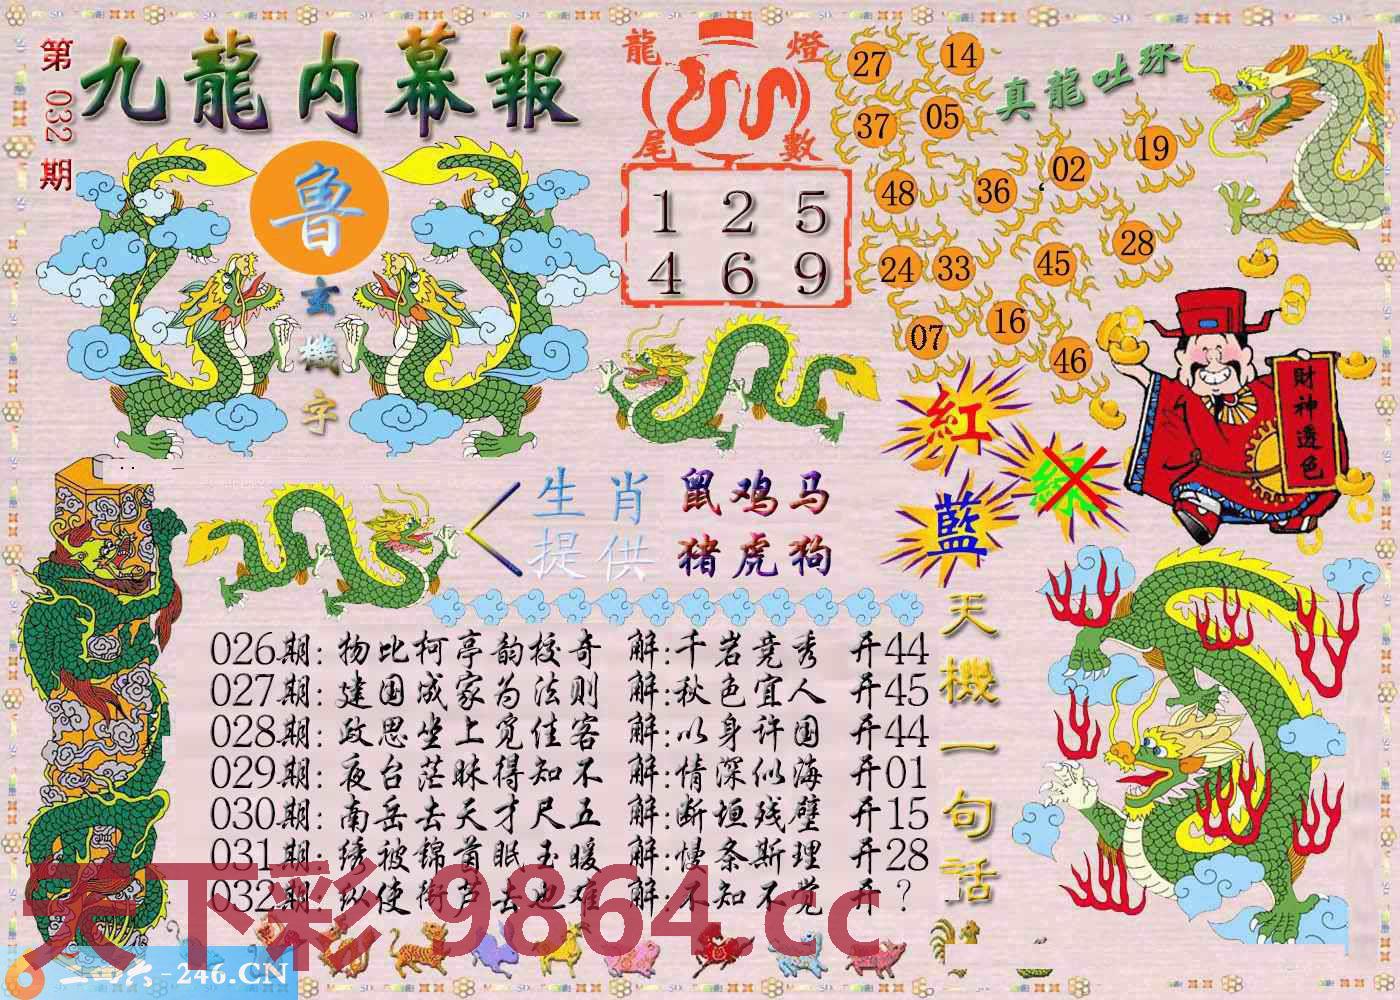 第 032 期
九龍内幕報
魯
玄機字
龍燈
尾數
1 2 5
4 6 9
27 14
37 05
48 36 02 19
24 33 45 28
07 16 46
真龍吐珠
財神透色
紅
綠
藍
生肖 鼠鸡马
提供 猪虎狗
天機一句話
026期: 物比柯亭韵校奇 解:千岩竞秀 开44
027期: 建国成家为法则 解:秋色宜人 开45
028期: 政思坐上觅佳客 解:以身许国 开44
029期: 夜台茫昧得知不 解:情深似海 开01
030期: 南岳去天才尺五 解:断垣残壁 开15
031期: 绣被锦茵眠玉暖 解:慢条斯理 开28
032期: 纵使衔芦去也难 解:不知不觉 开?
天下彩 9864.cc
二四六-246.CN